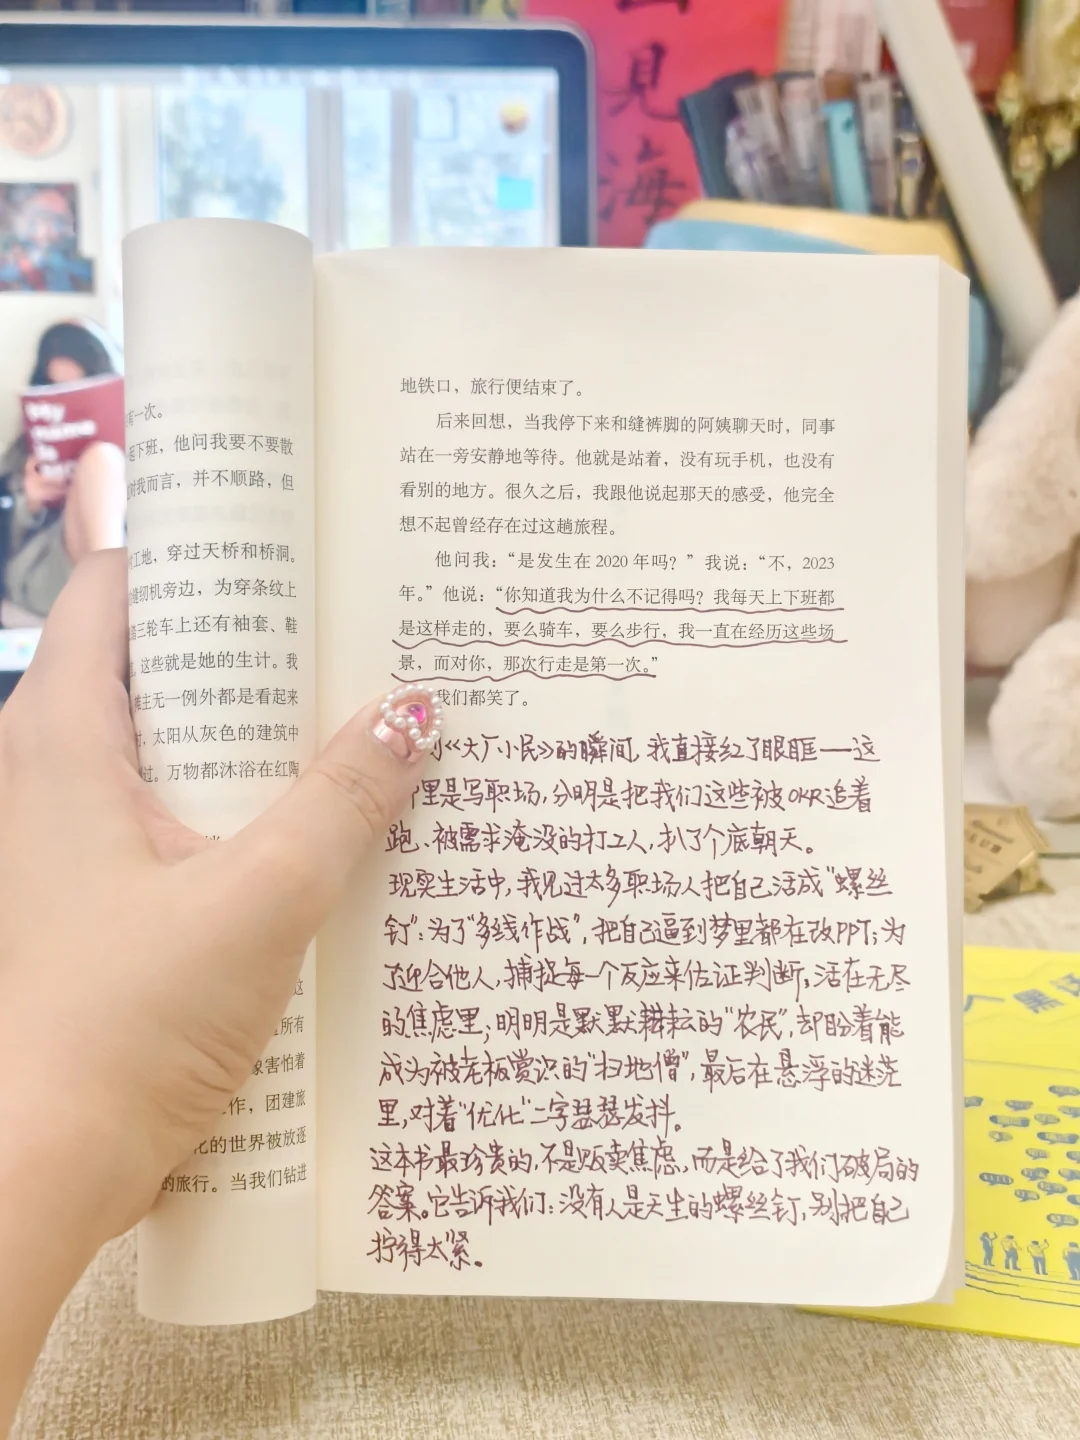 見
海
My
name
有一次。
起下班，他问我要不要散
对我而言，并不顺路，但
工地，穿过天桥和桥洞。
缝纫机旁边，为穿条纹上
三轮车上还有袖套、鞋
这些就是她的生计。我
摊主无一例外都是看起来
太阳从灰色的建筑中
过。万物都沐浴在红陶
这
所有
象害怕着
作，团建旅
化的世界被放逐
的旅行。当我们钻进
地铁口，旅行便结束了。
后来回想，当我停下来和缝裤脚的阿姨聊天时，同事
站在一旁安静地等待。他就是站着，没有玩手机，也没有
看别的地方。很久之后，我跟他说起那天的感受，他完全
想不起曾经存在过这趟旅程。
他问我：“是发生在 2020 年吗？”我说：“不，2023
年。”他说：“你知道我为什么不记得吗？我每天上下班都
是这样走的，要么骑车，要么步行，我一直在经历这些场
景，而对你，那次行走是第一次。”
我们都笑了。
《大厂小民》的瞬间，我直接红了眼眶——这
里是写职场，分明是把我们这些被OKR追着
跑、被需求淹没的打工人，扒了个底朝天。
现实生活中，我见过太多职场人把自己活成“螺丝
钉”：为了“多线作战”，把自己逼到梦里都在改PPT；为
了迎合他人，捕捉每一个反应来佐证判断，活在无尽
的焦虑里；明明是默默耕耘的“农民”，却盼着能
成为被老板赏识的“扫地僧”，最后在悬浮的迷茫
里，对着“优化”二字瑟瑟发抖。
这本书最珍贵的，不是贩卖焦虑，而是给了我们破局的
答案。它告诉我们：没有人是天生的螺丝钉，别把自己
拧得太紧。